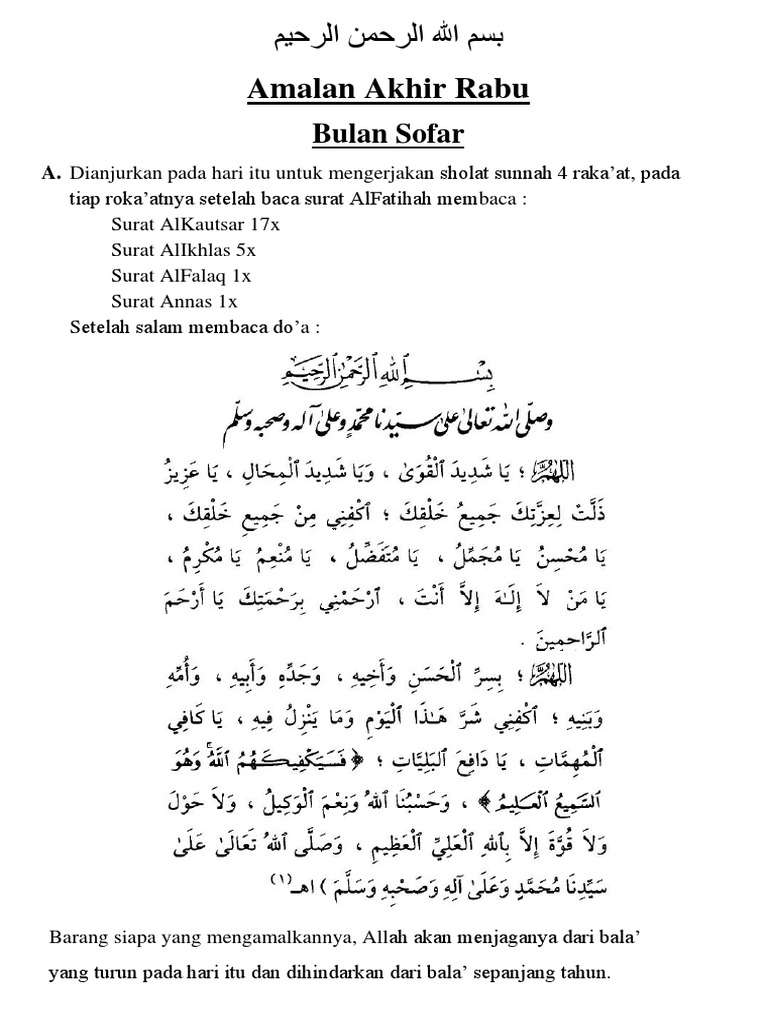 بسم الله الرحمن الرحيم
Amalan Akhir Rabu
Bulan Sofar
A. Dianjurkan pada hari itu untuk mengerjakan sholat sunnah 4 raka’at, pada
tiap roka’atnya setelah baca surat AlFatihah membaca :
Surat AlKautsar 17x
Surat AlIkhlas 5x
Surat AlFalaq 1x
Surat Annas 1x
Setelah salam membaca do’a :
بِسْمِ اللهِ الرَّحْمٰنِ الرَّحِيْمِ
وصلّى الله تعالى على سيّدنا محمّدٍ وعلى آله وصحبه وسلّم
اللَّهُمَّ ؛ يَا شَدِيدَ ٱلْقُوَىٰ ، وَيَا شَدِيدَ ٱلْمِحَالِ ، يَا عَزِيزُ
ذَلَّتْ لِعِزَّتِكَ جَمِيعُ خَلْقِكَ ؛ ٱكْفِنِي مِنْ جَمِيعِ خَلْقِكَ ،
يَا مُحْسِنُ يَا مُجَمِّلُ ، يَا مُتَفَضِّلُ ، يَا مُنْعِمُ يَا مُكْرِمُ ،
يَا مَنْ لاَ إِلَـٰهَ إِلاَّ أَنْتَ ، ٱرْحَمْنِي بِرَحْمَتِكَ يَا أَرْحَمَ
ٱلرَّاحِمِينَ .
اللَّهُمَّ ؛ بِسِرِّ ٱلْحَسَنِ وَأَخِيهِ ، وَجَدِّهِ وَأَبِيهِ ، وَأُمِّهِ
وَبَنِيهِ ؛ ٱكْفِنِي شَرَّ هَـٰذَا ٱلْيَوْمِ وَمَا يَنْزِلُ فِيهِ ، يَا كَافِي
ٱلْمُهِمَّاتِ ، يَا دَافِعَ ٱلبَلِيَّاتِ ؛ ﴿ فَسَيَكْفِيكَهُمُ ٱللَّهُ ۚ وَهُوَ
ٱلسَّمِيعُ ٱلْعَلِيمُ ﴾ ، وَحَسْبُنَا ٱللهُ وَنِعْمَ ٱلْوَكِيلُ ، وَلاَ حَوْلَ
وَلاَ قُوَّةَ إِلاَّ بِٱللهِ ٱلْعَلِيِّ ٱلْعَظِيمِ ، وَصَلَّى ٱللهُ تَعَالَىٰ عَلَىٰ
سَيِّدِنَا مُحَمَّدٍ وَعَلَىٰ آلِهِ وَصَحْبِهِ وَسَلَّمَ ) اهـ (١)
Barang siapa yang mengamalkannya, Allah akan menjaganya dari bala’
yang turun pada hari itu dan dihindarkan dari bala’ sepanjang tahun.